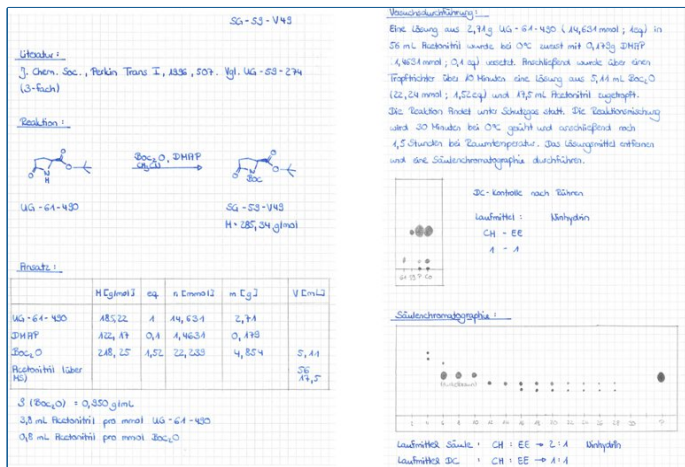 SG-S9-V49
Literatur:
J. Chem. Soc., Perkin Trans I, 1996, 507. Vgl. UG-S9-274
(3-fach)
Reaktion:
Boc₂O, DMAP
CH₃CN
O
N
H
O
N
Boc
UG-61-490
SG-S9-V49
M = 285,34 g/mol
Ansatz:
M [g/mol] eq n [mmol] m [g] V [mL]
UG-61-490 185,22 1 14,631 2,71
DMAP 122,17 0,1 1,4631 0,179
Boc₂O 218,25 1,52 22,239 4,854 5,11
Acetonitril (über MS) 56
17,5
ρ (Boc₂O) = 0,950 g/mL
3,8 mL Acetonitril pro mmol UG-61-490
0,8 mL Acetonitril pro mmol Boc₂O
Versuchsdurchführung:
Eine Lösung aus 2,71g UG-61-490 (14,631mmol; 1eq) in
56 mL Acetonitril wurde bei 0°C zuerst mit 0,179g DMAP
(1,4631mmol; 0,1eq) versetzt. Anschließend wurde über einen
Tropftrichter über 10 Minuten eine Lösung aus 5,11 mL Boc₂O
(22,24 mmol; 1,52eq) und 17,5 mL Acetonitril zugetropft.
Die Reaktion findet unter Schutzgas statt. Die Reaktionsmischung
wird 30 Minuten bei 0°C gerührt und anschließend noch
1,5 Stunden bei Raumtemperatur. Das Lösungsmittel entfernen
und eine Säulenchromatographie durchführen.
DC-Kontrolle nach Rühren
Laufmittel: Ninhydrin
CH - EE
1 - 1
Säulenchromatographie:
Laufmittel Säule: CH : EE → 2:1 Ninhydrin
Laufmittel DC: CH : EE → 1:1